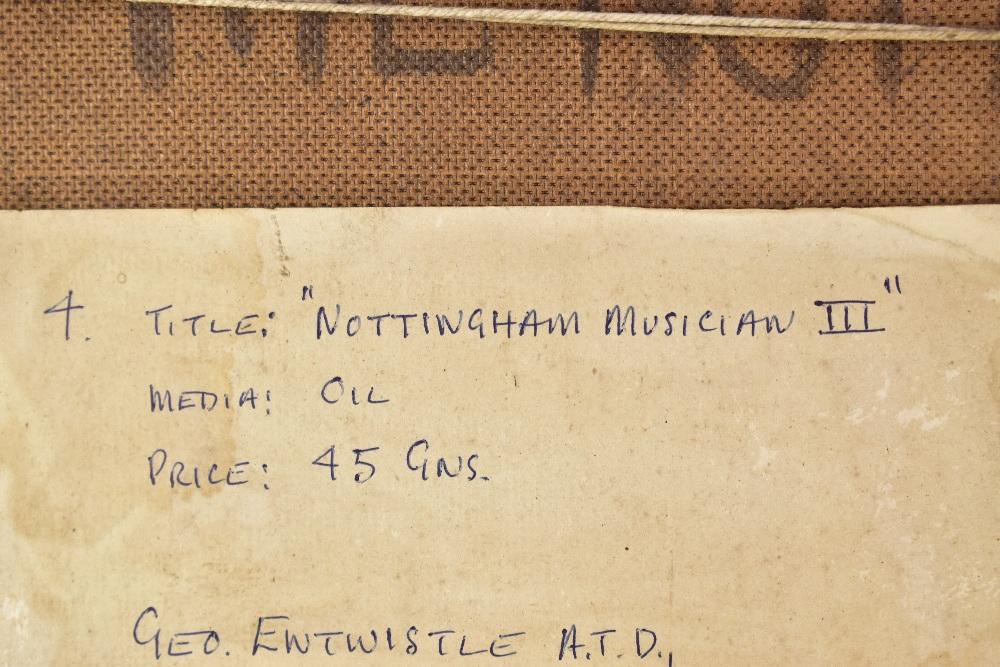 4. TITLE: "NOTTINGHAM MUSICIAN III"
MEDIA: OIL
PRICE: 45 GNS.
GEO. ENTWISTLE A.T.D.,